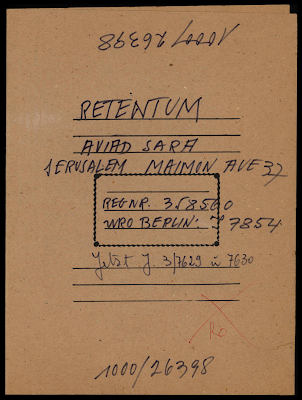 1000/26398
RETENTUM
AVIAD SARA
JERUSALEM MAIMON AVE 37
REGNR. 358560
WRO BERLIN: J 7854
Jetzt J. 3/7629 u 7630
Ro
1000/26398